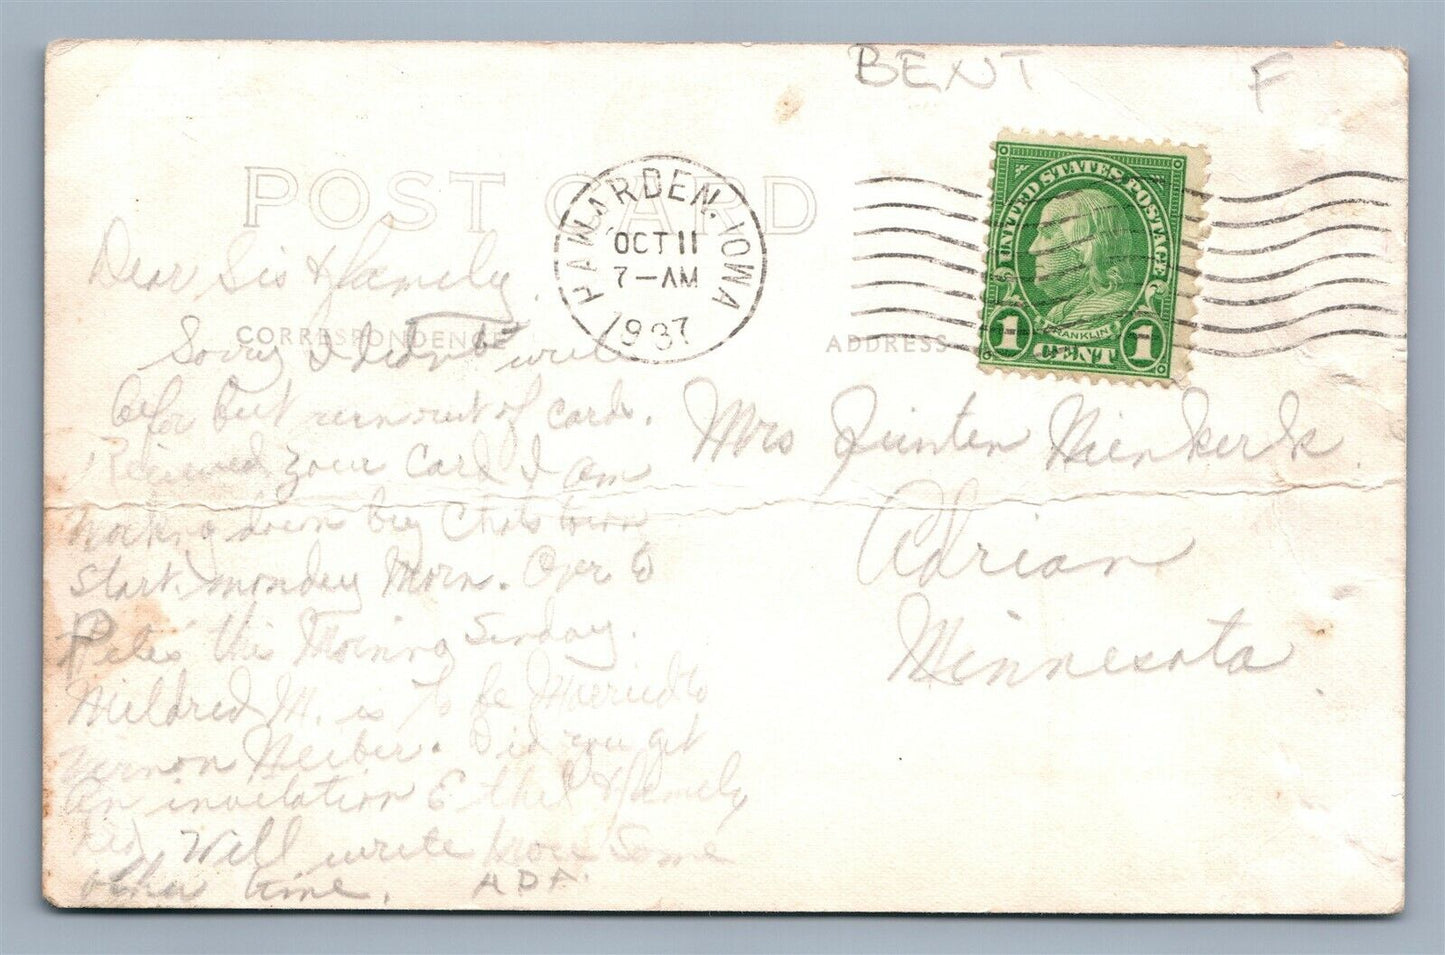 BENT F
POST CARD
HAWARDEN. IOWA
OCT 11
7-AM
1937
UNITED STATES POSTAGE
FRANKLIN
1 CENT 1
CORRESPONDENCE
ADDRESS
Dear Sis & family.
Sorry I didnt write
befor but run out of cards.
Recieved your Card I am
Working down by
start monday Morn. Over to
Petes this Morning Sunday.
Mildred M. is to be Married to
Vernon. Did you get
An invitation Ethel & family
did, Will write more Some
other time. ADA.
Mrs
Adrian
Minnesota